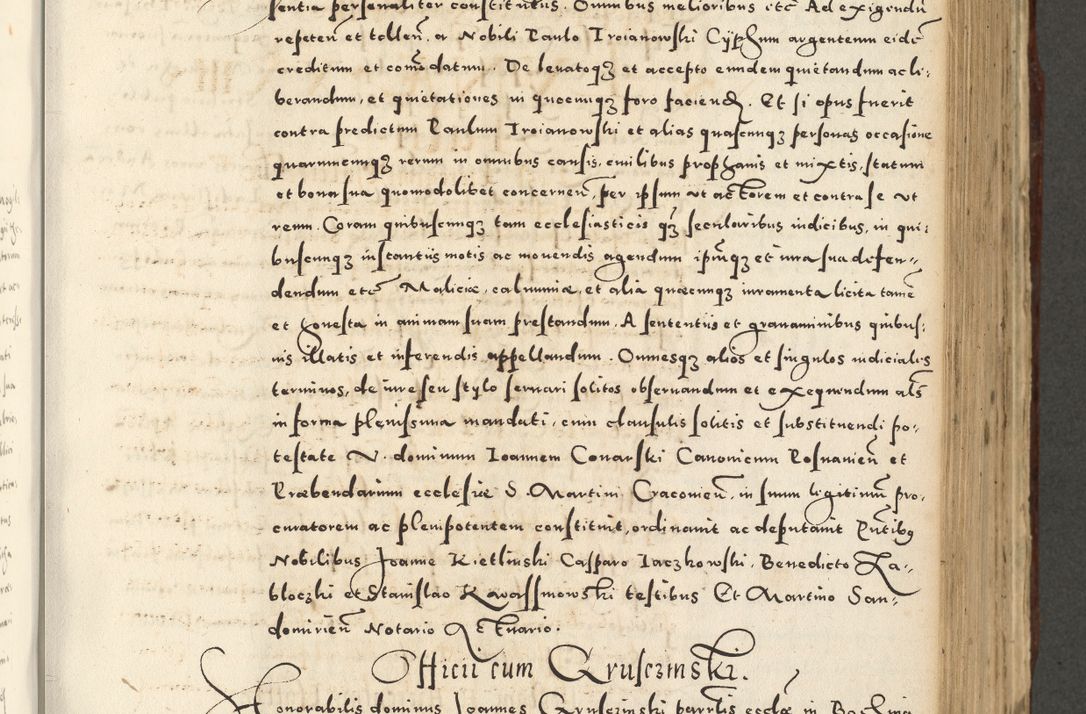 sentia personaliter constitutus. Omnibus melioribus etc Ad exigendū
repeteñ et tolleñ, a Nobili Paulo Troianowski Cyphum argenteum eidē
creditum et comōdatum. De leuatoq₃ et accepto eundem quietandum ac li-
berandum, et quietationes in quocunq₃ foro faciend. Et si opus fuerit
contra predictum Paulum Troianowski et alias quascunq₃ personas occasione
quarumcunq₃ rerum in omnibus causis, ciuilibus prophanis et mixtis, statum
et bona sua quomodolibet concerneñ, per ipsum ut actorem et contra se ut
reum. Coram quibuscunq₃ tam ecclesiasticis q₃ secularibus iudicibus, in qui-
buscunq₃ instantiis motis ac mouendis agendum ipūmq₃ et iura sua defen-
dendum etc Maliciæ, calumniæ, et alia quæcunq₃ iuramenta licita tamē
et honesta in animam suam prestandum. A sententiis et grauaminibus quibus-
uis illatis et inferendis appellandum. Omnesq₃ alios et singulos iudiciales
terminos, de iure seu stylo seruari solitos obseruandum et exequendum als
in forma plenissima mandati, cum clausulis solitis et substituendi po-
testate V. dominum Ioannem Conarski Canonicum Posnanieñ et
Præbendarium ecclesiæ S. Martini Cracouieñ, in suum ligitimū pro-
curatorem ac plenipotentem constituit, ordinauit ac deputauit Pñtibq
Nobilibus Joanne Kietlinski Casparo Iaczkowski, Benedicto Za-
bloczki et Stanislao Kwassniowski testibus Et Martino San-
domirieñ Notario Actuario.
Officii cum Gruscziński.
Honorabilis dominus Ioannes Grusczinski parrtis ecclæ in